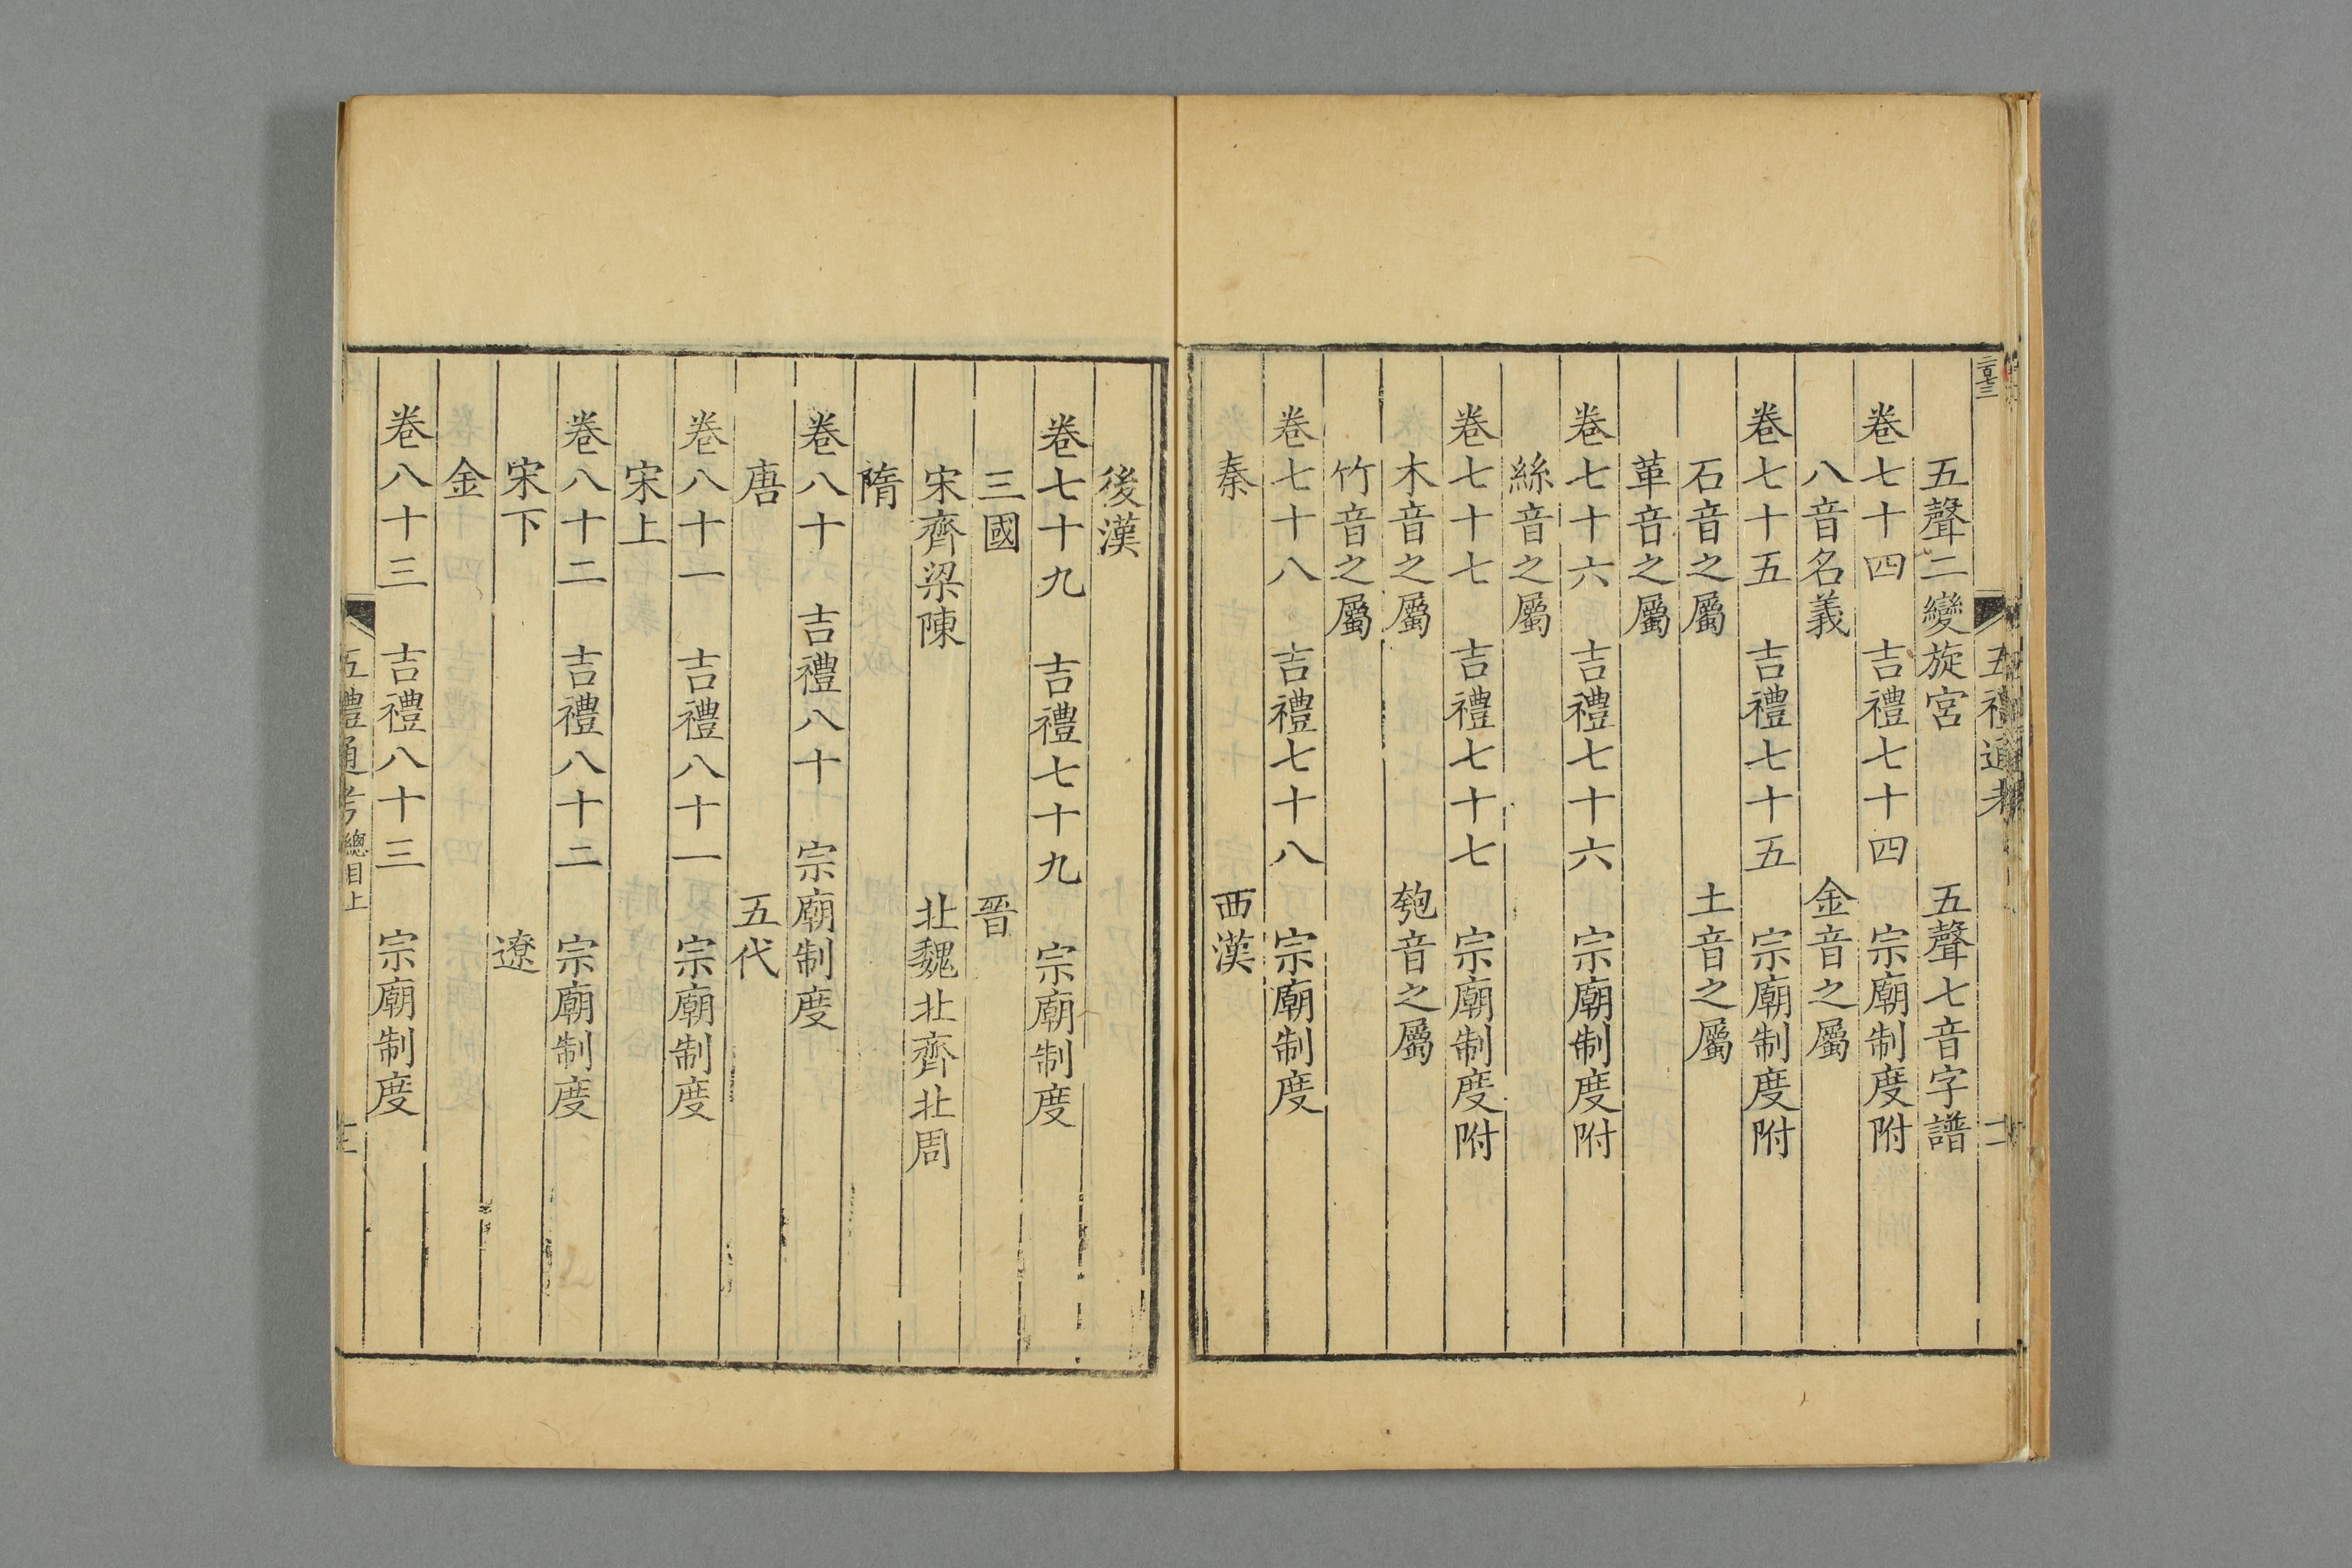 五禮通考
五聲二變旋宮 五聲七音字譜
卷七十四 吉禮七十四 宗廟制度附
八音名義 金音之屬
卷七十五 吉禮七十五 宗廟制度附
石音之屬 土音之屬
革音之屬
卷七十六 吉禮七十六 宗廟制度附
絲音之屬
卷七十七 吉禮七十七 宗廟制度附
木音之屬 匏音之屬
竹音之屬
卷七十八 吉禮七十八 宗廟制度
秦 西漢
後漢
卷七十九 吉禮七十九 宗廟制度
三國 晉
宋齊梁陳 北魏北齊北周
隋
卷八十 吉禮八十 宗廟制度
唐 五代
卷八十一 吉禮八十一 宗廟制度
宋上
卷八十二 吉禮八十二 宗廟制度
宋下 遼
金
卷八十三 吉禮八十三 宗廟制度
五禮通考 總目上